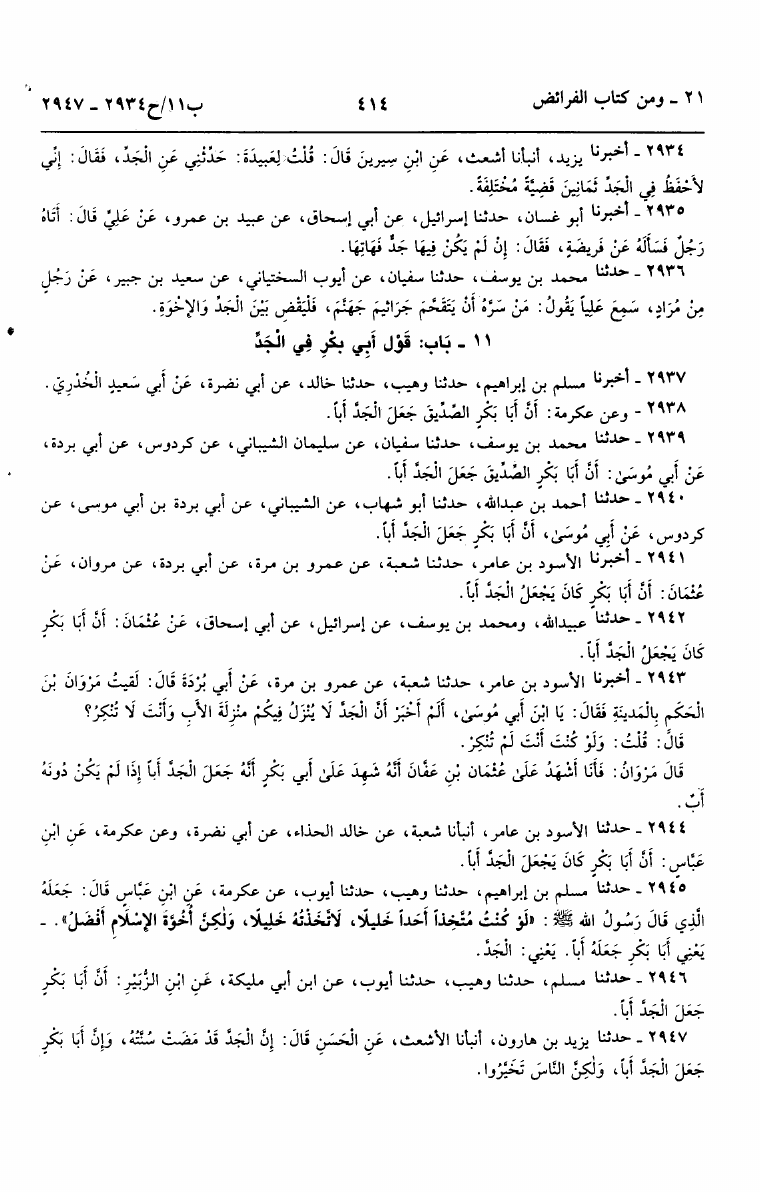 ٢١ ـ ومن كتاب الفرائض ٤١٤ ب١١/ح٢٩٣٤ ـ ٢٩٤٧
٢٩٣٤ ـ أخبرنا يزيد، أنبأنا أشعث، عَنِ ابْنِ سِيرينَ قَالَ: قُلْتُ لِعَبِيدَةَ: حَدِّثْنِي عَنِ الْجَدِّ، فَقَالَ: إِنِّي
لأَحْفَظُ فِي الْجَدِّ ثَمَانِينَ قَضِيَّةً مُخْتَلِفَةً.
٢٩٣٥ ـ أخبرنا أبو غسان، حدثنا إسرائيل، عن أبي إسحاق، عن عبيد بن عمرو، عَنْ عَلِيٍّ قَالَ: أَتَاهُ
رَجُلٌ فَسَأَلَهُ عَنْ فَرِيضَةٍ، فَقَالَ: إِنْ لَمْ يَكُنْ فِيهَا جَدٌّ فَهَاتِهَا.
٢٩٣٦ ـ حدثنا محمد بن يوسف، حدثنا سفيان، عن أيوب السختياني، عن سعيد بن جبير، عَنْ رَجُلٍ
مِنْ مُرَادٍ، سَمِعَ عَلِياً يَقُولُ: مَنْ سَرَّهُ أَنْ يَتَقَحَّمَ جَرَاثِيمَ جَهَنَّمَ، فَلْيَقْضِ بَيْنَ الْجَدِّ وَالإِخْوَةِ.
١١ ـ بَاب: قَوْل أَبِي بكْرٍ فِي الْجَدِّ
٢٩٣٧ ـ أخبرنا مسلم بن إبراهيم، حدثنا وهيب، حدثنا خالد، عن أبي نضرة، عَنْ أَبي سَعيدٍ الْخُدْرِيّ.
٢٩٣٨ - وعن عكرمة: أَنَّ أَبَا بَكْرٍ الصِّدِّيقَ جَعَلَ الْجَدَّ أَباً.
٢٩٣٩ ـ حدثنا محمد بن يوسف، حدثنا سفيان، عن سليمان الشيباني، عن كردوس، عن أبي بردة،
عَنْ أَبي مُوسَىٰ: أَنَّ أَبَا بَكْرٍ الصِّدِّيقَ جَعَلَ الْجَدَّ أَباً.
٢٩٤٠ ـ حدثنا أحمد بن عبدالله، حدثنا أبو شهاب، عن الشيباني، عن أبي بردة بن أبي موسى، عن
كردوس، عَنْ أَبِي مُوسَىٰ، أَنَّ أَبَا بَكْرٍ جَعَلَ الْجَدَّ أَباً.
٢٩٤١ ـ أخبرنا الأسود بن عامر، حدثنا شعبة، عن عمرو بن مرة، عن أبي بردة، عن مروان، عَنْ
عُثْمَانَ: أَنَّ أَبَا بَكْرٍ كَانَ يَجْعَلُ الْجَدَّ أَباً.
٢٩٤٢ ـ حدثنا عبيدالله، ومحمد بن يوسف، عن إسرائيل، عن أبي إسحاق، عَنْ عُثْمَانَ: أَنَّ أَبَا بَكْرٍ
كَانَ يَجْعَلُ الْجَدَّ أَباً.
٢٩٤٣ ـ أخبرنا الأسود بن عامر، حدثنا شعبة، عن عمرو بن مرة، عَنْ أَبي بُرْدَةَ قَالَ: لَقيتُ مَرْوَانَ بْنَ
الْحَكَمِ بِالْمَدينَةِ فَقَالَ: يَا ابْنَ أَبي مُوسَىٰ، أَلَمْ أُخْبَرْ أَنَّ الْجَدَّ لَا يُنْزَلُ فِيكُمْ مَنْزِلَةَ الأَبِ وَأَنْتَ لَا تُنْكِرُ؟
قَالَ: قُلْتُ: وَلَوْ كُنْتَ أَنْتَ لَمْ تُنْكِرْ.
قَالَ مَرْوَانُ: فَأَنَا أَشْهَدُ عَلَىٰ عُثْمَان بْنِ عَفَّان أَنَّهُ شَهِدَ عَلَىٰ أَبي بَكْرٍ أَنَّهُ جَعَلَ الْجَدَّ أَباً إِذَا لَمْ يَكُنْ دُونَهُ
أَبٌ.
٢٩٤٤ ـ حدثنا الأسود بن عامر، أنبأنا شعبة، عن خالد الحذاء، عن أبي نضرة، وعن عكرمة، عَنِ ابْنِ
عَبَّاسٍ: أَنَّ أَبَا بَكْرٍ كَانَ يَجْعَلَ الْجَدَّ أَباً.
٢٩٤٥ ـ حدثنا مسلم بن إبراهيم، حدثنا وهيب، حدثنا أيوب، عن عكرمة، عَنِ ابْنِ عَبَّاسٍ قَالَ: جَعَلَهُ
الَّذِي قَالَ رَسُولُ الله ﷺ: «لَوْ كُنْتُ مُتَّخِذاً أَحَداً خَلِيلًا، لَاتَّخَذْتُهُ خَلِيلًا، وَلَكِنَّ أُخُوَّةَ الإِسْلَامِ أَفْضَلُ». ـ
يَعْنِي أَبَا بَكْرٍ جَعَلَهُ أَباً. يَعْنِي: الْجَدَّ.
٢٩٤٦ ـ حدثنا مسلم، حدثنا وهيب، حدثنا أيوب، عن ابن أبي مليكة، عَنِ ابْنِ الزُّبَيْرِ: أَنَّ أَبَا بَكْرٍ
جَعَلَ الْجَدَّ أَباً.
٢٩٤٧ ـ حدثنا يزيد بن هارون، أنبأنا الأشعث، عَنِ الْحَسَنِ قَالَ: إِنَّ الْجَدَّ قَدْ مَضَتْ سُنَّتُهُ، وَإِنَّ أَبَا بَكْرٍ
جَعَلَ الْجَدَّ أَباً، وَلٰكِنَّ النَّاسَ تَخَيَّرُوا.